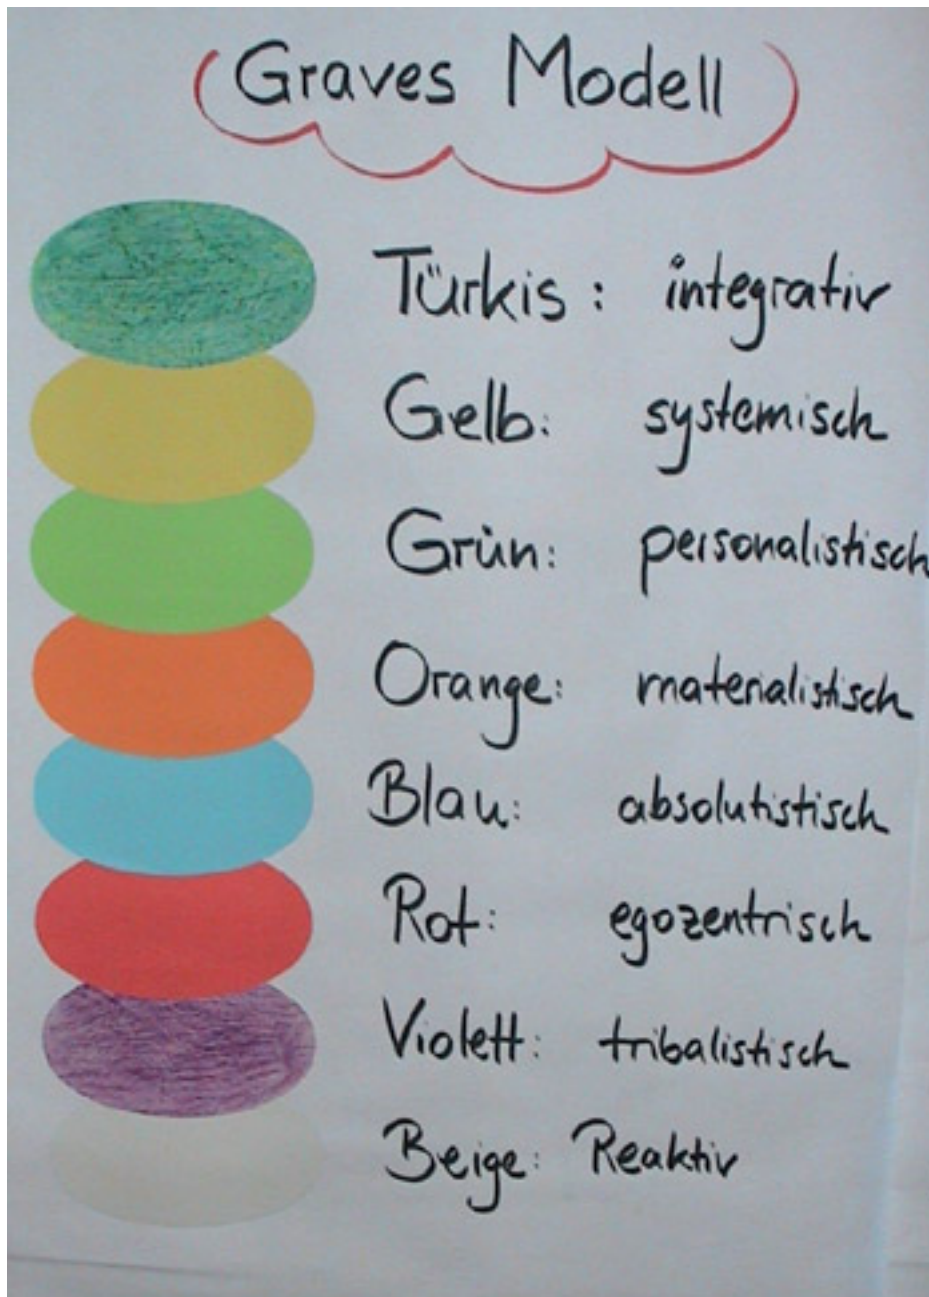 Graves Modell
Türkis: integrativ
Gelb: systemisch
Grün: personalistisch
Orange: materialistisch
Blau: absolutistisch
Rot: egozentrisch
Violett: tribalistisch
Beige: Reaktiv